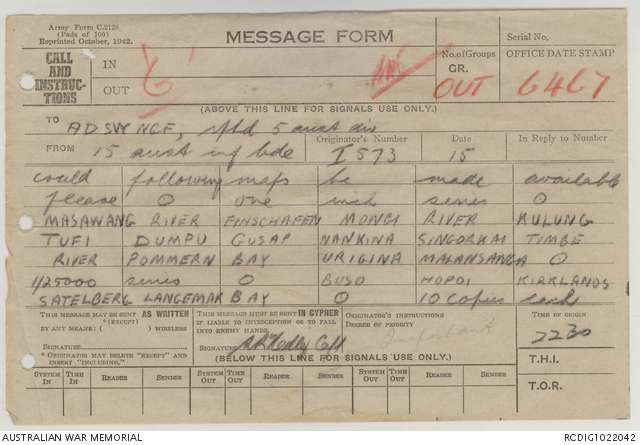 Army Form C.2128
(Pads of 100)
Reprinted October, 1942.
MESSAGE FORM
Serial No.
CALL AND INSTRUCTIONS
IN
OUT
6
No. of Groups
GR.
OUT
OFFICE DATE STAMP
6467
(ABOVE THIS LINE FOR SIGNALS USE ONLY.)
TO ADSVY NGF, 5 aust div
FROM 15 aust inf bde
Originator's Number
I 573
Date
15
In Reply to Number
could following maps be made available
please O one inch series O
MASAWANG RIVER FINSCHAFEN MONGI RIVER KULUNG
TUFI DUMPU GUSAP NANKINA SINGORKAI TIMBE
RIVER POMMERN BAY URIGINA MALANSANGA O
1/25000 series O BUSO HOPOI KIRKLANDS
SATELBERG LANGEMAK BAY O 10 copies each
THIS MESSAGE MAY BE SENT AS WRITTEN
BY ANY MEANS. * (EXCEPT) WIRELESS
SIGNATURE
* ORIGINATOR MAY DELETE "EXCEPT" AND INSERT "INCLUDING."
THIS MESSAGE MUST BE SENT IN CYPHER
IF LIABLE TO INTERCEPTION OR TO FALL INTO ENEMY HANDS.
SIGNATURE Capt
ORIGINATOR'S INSTRUCTIONS
DEGREE OF PRIORITY
Important
TIME OF ORIGIN
2230
(BELOW THIS LINE FOR SIGNALS USE ONLY.)
T.H.I.
SYSTEM IN TIME IN READER SENDER SYSTEM OUT TIME OUT READER SENDER SYSTEM OUT TIME OUT READER SENDER
T.O.R.
AUSTRALIAN WAR MEMORIAL
RCDIG1022042